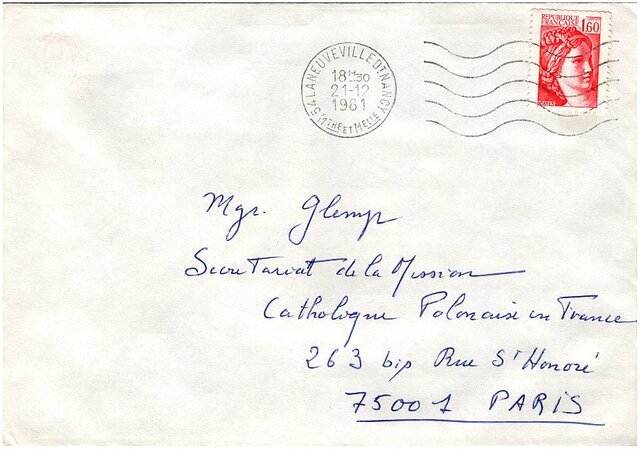 54 LANEUVEVILLE DT NANCY
18H30
21-12
1981
MTHE ET MELLE
REPUBLIQUE
FRANÇAISE
1,60
POSTES
Mgr. Glemp
Secretariat de la Mission
Catholique Polonaise en France
263 bis Rue St Honoré
75001 PARIS